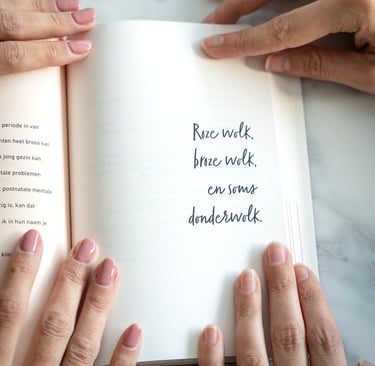 periode in van
nten heel broos kan
jong gezin kan
tale problemen
postnatale mentale
ig is, kan dat
ik in hun naam je
Roze wolk,
broze wolk,
en soms
donderwolk.